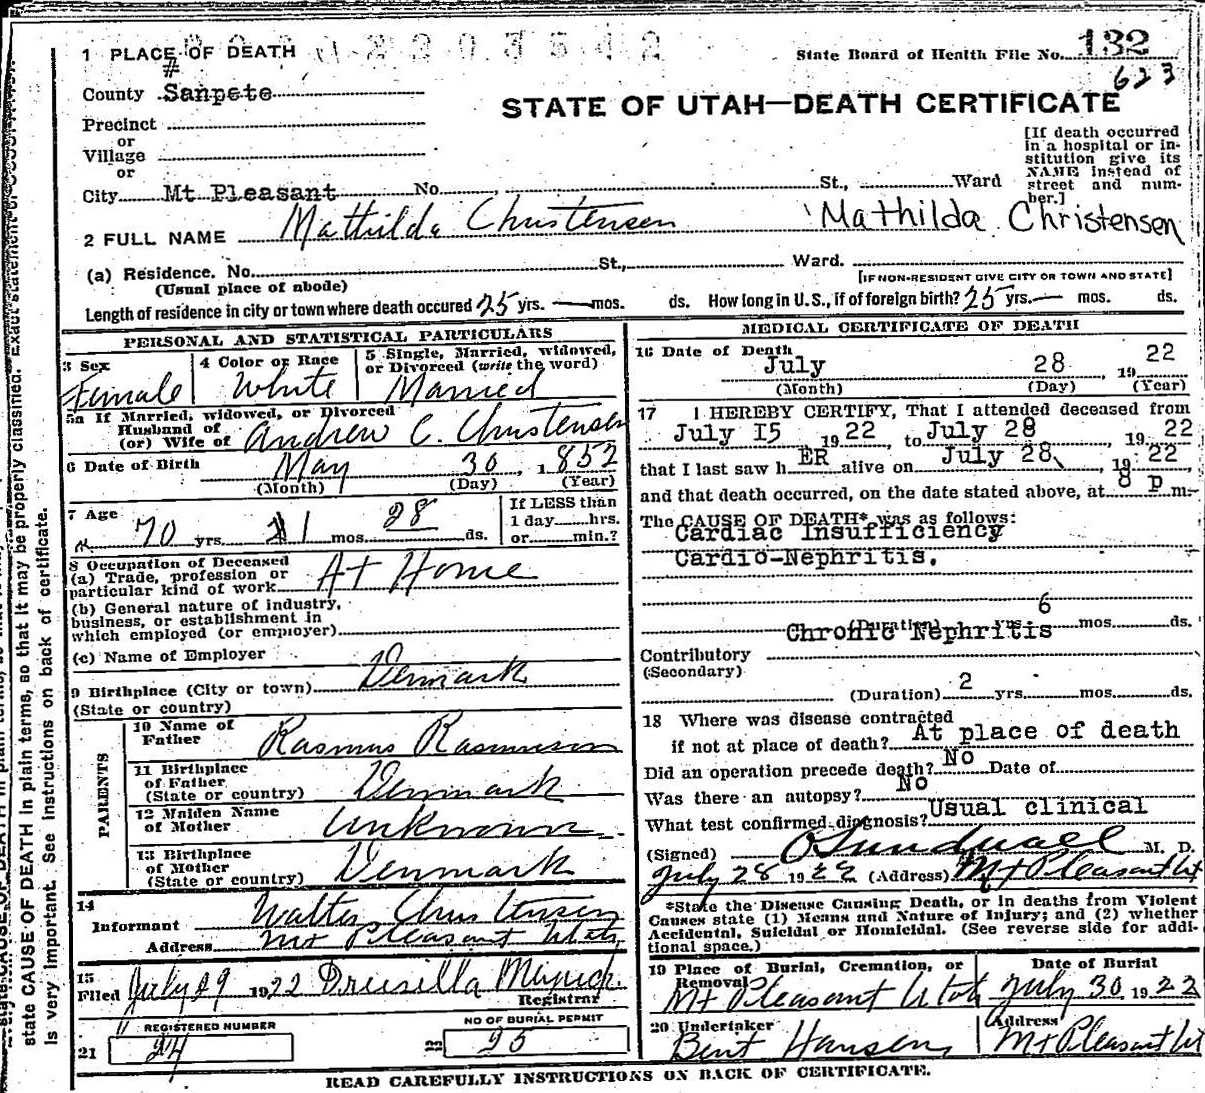 1 PLACE OF DEATH
State Board of Health File No. 132
623
County Sanpete
STATE OF UTAH—DEATH CERTIFICATE
Precinct
or
Village
or
[If death occurred in a hospital or institution give its NAME instead of street and number.]
City Mt Pleasant No. St., Ward
2 FULL NAME Mathilda Christensen Mathilda Christensen
(a) Residence. No. St., Ward.
(Usual place of abode) [IF NON-RESIDENT GIVE CITY OR TOWN AND STATE]
Length of residence in city or town where death occured 25 yrs. — mos. ds. How long in U.S., if of foreign birth? 25 yrs. — mos. ds.
PERSONAL AND STATISTICAL PARTICULARS
3 Sex Female
4 Color or Race White
5 Single, Married, widowed, or Divorced (write the word) Married
5a If Married, widowed, or Divorced
Husband of
(or) Wife of Andrew C. Christensen
6 Date of Birth May 30, 1852
(Month) (Day) (Year)
7 Age 70 yrs. 1 mos. 28 ds.
If LESS than
1 day hrs.
or min.?
8 Occupation of Deceased
(a) Trade, profession or
particular kind of work At Home
(b) General nature of industry,
business, or establishment in
which employed (or employer)
(c) Name of Employer
9 Birthplace (City or town) Denmark
(State or country)
PARENTS
10 Name of
Father Rasmus Rasmussen
11 Birthplace
of Father
(State or country) Denmark
12 Maiden Name
of Mother Unknown
13 Birthplace
of Mother
(State or country) Denmark
14
Informant Walter Christensen
Address Mt Pleasant Utah
15
Filed July 29 1922 Drusilla Minick
Registrar
REGISTERED NUMBER
21 24
NO OF BURIAL PERMIT
22 25
MEDICAL CERTIFICATE OF DEATH
16 Date of Death
July 28 1922
(Month) (Day) (Year)
17 I HEREBY CERTIFY, That I attended deceased from
July 15 1922 to July 28, 1922
that I last saw hER alive on July 28, 1922
and that death occurred, on the date stated above, at 8 P m.
The CAUSE OF DEATH* was as follows:
Cardiac Insufficiency
Cardio-Nephritis.
(Duration) 6 yrs. mos. ds.
Chronic Nephritis
Contributory
(Secondary)
(Duration) 2 yrs. mos. ds.
18 Where was disease contracted
if not at place of death? At place of death
Did an operation precede death? No Date of
Was there an autopsy? No
What test confirmed diagnosis? Usual clinical
(Signed) O Sundwall M. D.
July 28 1922 (Address) Mt Pleasant Ut
*State the Disease Causing Death, or in deaths from Violent
Causes state (1) Means and Nature of Injury; and (2) whether
Accidental, Suicidal or Homicidal. (See reverse side for addi-
tional space.)
19 Place of Burial, Cremation, or
Removal? Mt Pleasant Utah
Date of Burial
July 30 1922
20 Undertaker
Bent Hansen,
Address
Mt Pleasant Ut
READ CAREFULLY INSTRUCTIONS ON BACK OF CERTIFICATE.
state CAUSE OF DEATH in plain terms, so that it may be properly classified. Exact statement
is very important. See instructions on back of certificate.